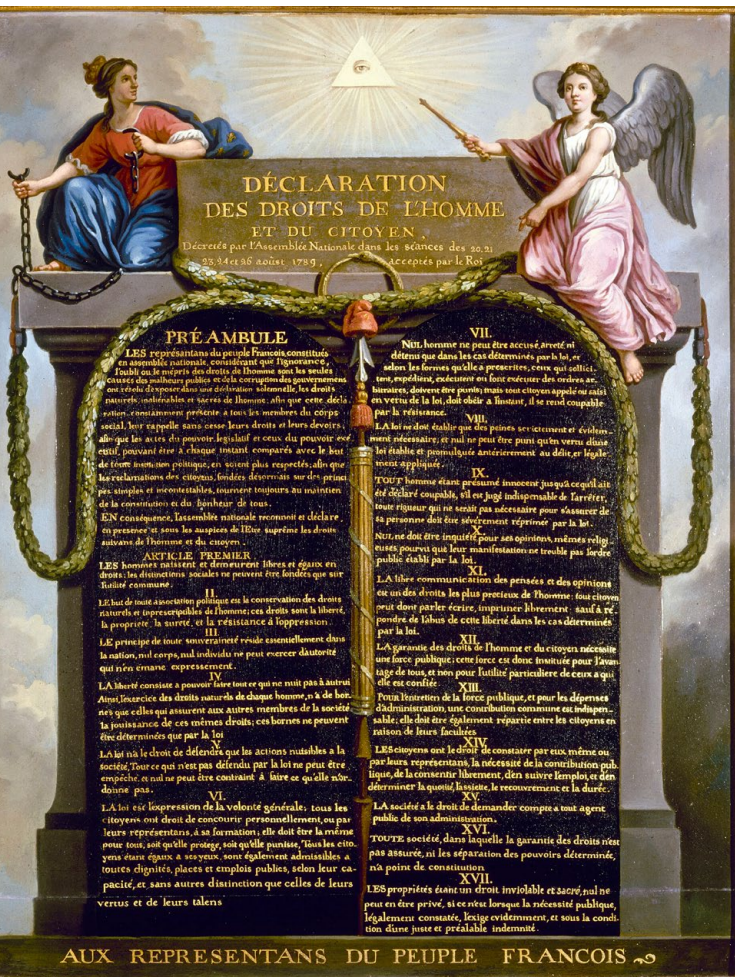 DÉCLARATION
DES DROITS DE L'HOMME
ET DU CITOYEN,
Décretés par l'Assemblée Nationale dans les séances des 20.21
23.24 et 26 aoust 1789, acceptés par le Roi
PRÉAMBULE
LES représantans du peuple Francois, constitués
en assemblée nationale, considérant que l'ignorance,
l'oubli ou le mépris des droits de l'homme sont les seules
causes des malheurs publics et de la corruption des gouvernemens
ont résolu d'exposer dans une déclaration solemnelle, les droits
naturels, inaliénables et sacrés de l'homme; afin que cette décla
ration, constamment présente a tous les membres du corps
social, leur rappelle sans cesse leurs droits et leurs devoirs,
afin que les actes du pouvoir legislatif et ceux du pouvoir exé
cutif, pouvant être à chaque instant comparés avec le but
de toute institution politique, en soient plus respectés; afin que
les reclamations des citoyens, fondées désormais sur des princi
pes simples et incontestables, tournent toujours au maintien
de la constitution et du bonheur de tous.
EN conséquence, l'assemblée nationale reconnoit et déclare,
en presence et sous les auspices de l'Etre suprême les droits
suivans de l'homme et du citoyen.
ARTICLE PREMIER
LES hommes naissent et demeurent libres et égaux en
droits; les distinctions sociales ne peuvent être fondées que sur
l'utilité commune.
II.
LE but de toute association politique est la conservation des droits
naturels et inprescriptibles de l'homme; ces droits sont la liberté,
la propriété, la sureté, et la résistance à l'oppression.
III.
LE principe de toute souveraineté réside essentiellement dans
la nation, nul corps, nul individu ne peut exercer d'autorité
qui n'en émane expressement.
IV.
LA liberté consiste a pouvoir faire tout ce qui ne nuit pas à autrui
Ainsi, l'exercice des droits naturels de chaque homme, n'a de bor
nes que celles qui assurent aux autres membres de la société
la jouissance de ces mêmes droits; ces bornes ne peuvent
être déterminées que par la loi
V.
LA loi n'a le droit de défendre que les actions nuisibles a la
société. Tout ce qui n'est pas défendu par la loi ne peut être
empêché, et nul ne peut être contraint à faire ce qu'elle n'or-
donne pas.
VI.
LA loi est l'expression de la volonté générale; tous les
citoyens ont droit de concourir personnellement, ou par
leurs représentans, à sa formation; elle doit être la même
pour tous, soit qu'elle protege, soit qu'elle punisse, Tous les cito
yens étant égaux a ses yeux, sont également admissibles a
toutes dignités, places et emplois publics, selon leur ca-
pacité, et sans autres distinction que celles de leurs
vertus et de leurs talens
VII.
NUL homme ne peut être accusé, arreté, ni
détenu que dans les cas déterminés par la loi, et
selon les formes qu'elle a prescrites, ceux qui sollici-
tent, expédient, exécutent ou font exécuter des ordres ar-
bitraires, doivent être punis; mais tout citoyen appelé ou saisi
en vertu de la loi, doit obéir a l'instant, il se rend coupable
par la résistance.
VIII.
LA loi ne doit établir que des peines strictement et évidem-
ment nécessaire, et nul ne peut être puni qu'en vertu d'une
loi établie et promulguée antérierement au délit, et légale
ment appliquée.
IX.
TOUT homme étant présumé innocent jusqu'à ce qu'il ait
été déclaré coupable, s'il est jugé indispensable de l'arrêter,
toute rigueur qui ne serait pas nécessaire pour s'assurer de
sa personne doit être sévèrement réprimée par la loi.
X.
NUL ne doit être inquiété pour ses opinions, mêmes religi
euses pourvu que leur manifestation ne trouble pas l'ordre
public établi par la loi.
XI.
LA libre communication des pensées et des opinions
est un des droits les plus precieux de l'homme: tout citoyen
peut dont parler écrire, imprimer librement: sauf à ré
pondre de l'abus de cette liberté dans les cas déterminés
par la loi.
XII.
LA garantie des droits de l'homme et du citoyen nécessite
une force publique; cette force est donc instituée pour l'avan
tage de tous, et non pour l'utilité particuliere de ceux a qui
elle est confiée.
XIII.
Pour l'entretien de la force publique, et pour les dépenses
d'administration, une contribution commune est indispen-
sable; elle doit être également répartie entre les citoyens en
raison de leurs facultées
XIV.
LES citoyens ont le droit de constater par eux même ou
par leurs représentans, la nécessité de la contribution pub
lique, de la consentir librement, d'en suivre l'emploi, et d'en
déterminer la quotité, l'assiette, le recouvrement et la durée.
XV.
LA société a le droit de demander compte a tout agent
public de son administration.
XVI.
TOUTE société, dans laquelle la garantie des droits n'est
pas assurée, ni les séparation des pouvoirs déterminée,
n'a point de constitution
XVII.
LES propriétés étant un droit inviolable et sacré, nul ne
peut en être privé, si ce n'est lorsque la nécessité publique,
légalement constatée, l'exige evidemment, et sous la condi
tion d'une juste et préalable indemnité.
AUX REPRESENTANS DU PEUPLE FRANCOIS